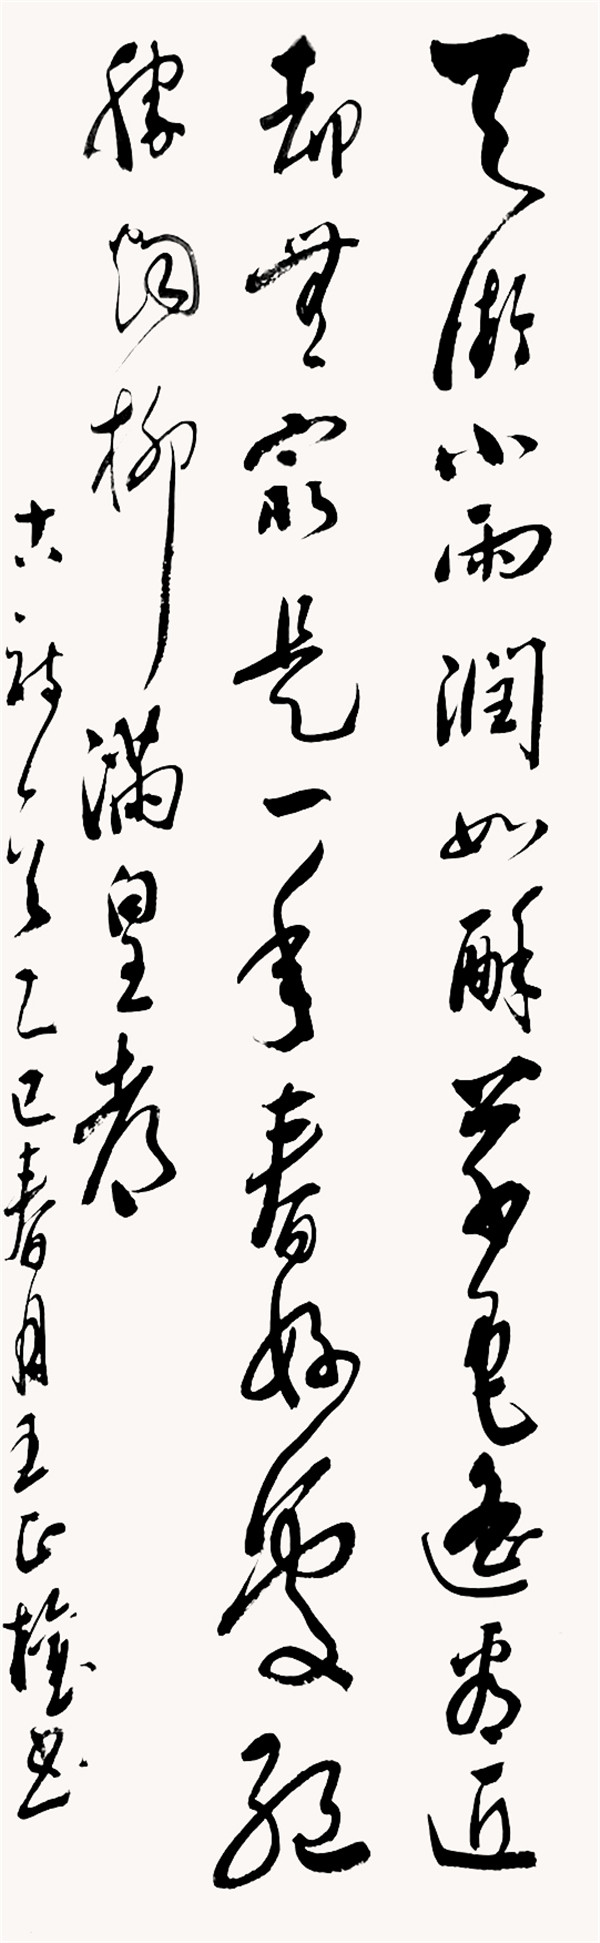 天街小雨润如酥草色遥看近
却無最是一年春好處絶
勝烟柳满皇都
古诗一首乙巳春月王正书